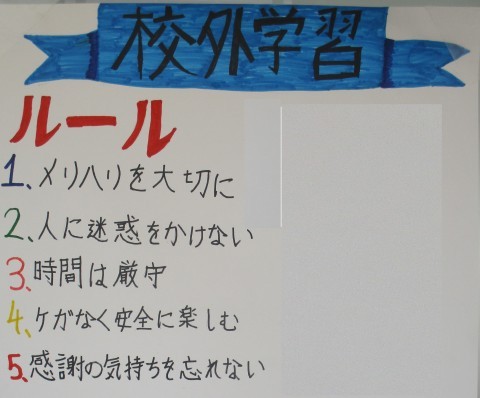 校外学習
ルール
1、メリハリを大切に
2、人に迷惑をかけない
3、時間は厳守
4、ケガなく安全に楽しむ
5、感謝の気持ちを忘れない